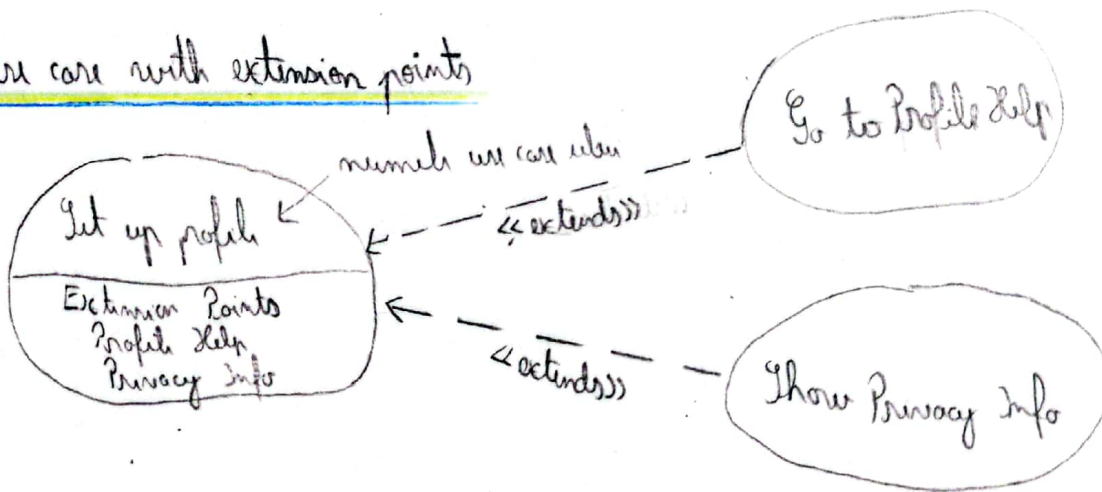 use case with extension points
numele use case ului
Set up profile
Extension Points
Profile Help
Privacy Info
<<extends>>
Go to Profile Help
<<extends>>
Show Privacy Info